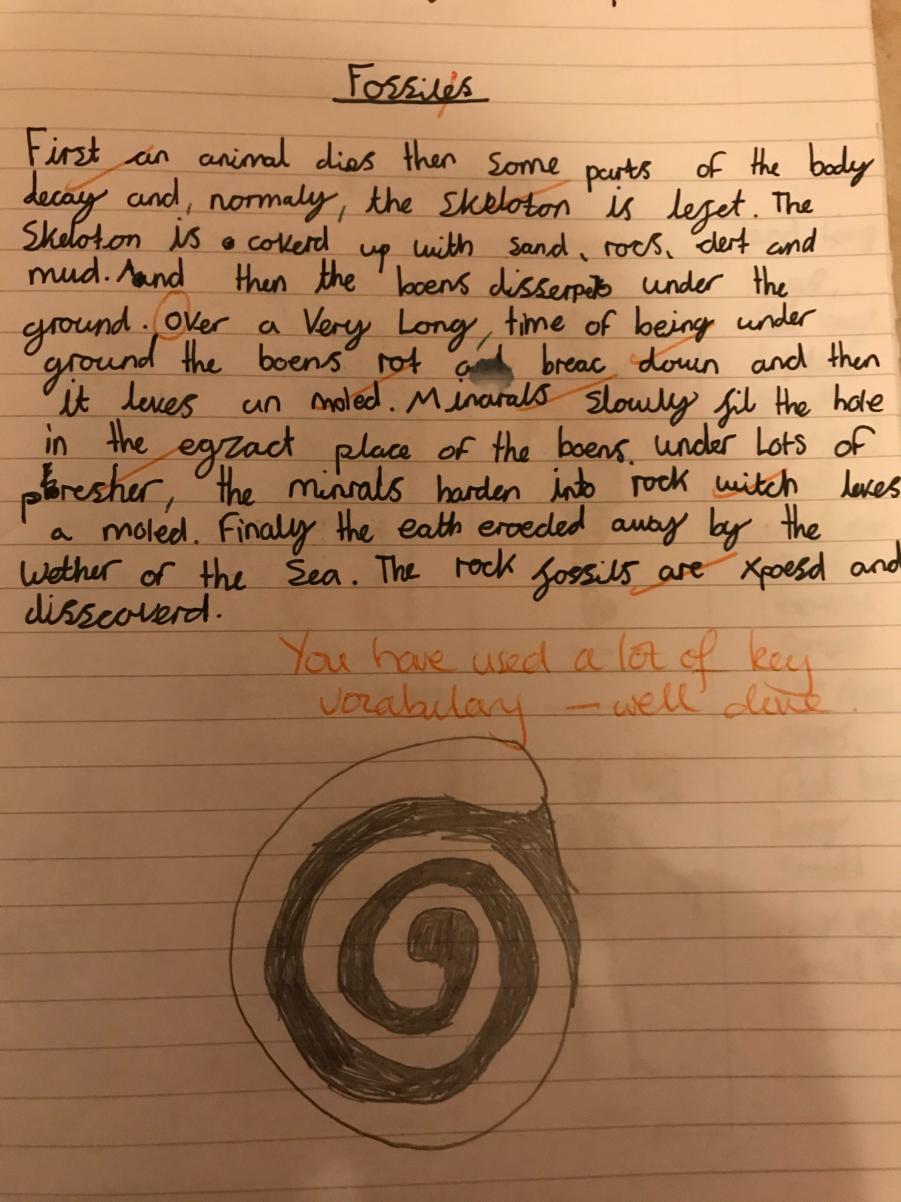 Fossils
First an animal dies then some parts of the body
decay and, normaly, the Skeloton is lefet. The
Skeloton is coverd up with sand, rocs, dert and
mud. And then the boens disserpet under the
ground. Over a Very Long, time of being under
ground the boens rot and breac down and then
it leves an moled. Minarals slowly fil the hole
in the egzact place of the boens. under Lots of
presher, the minrals harden into rock witch leves
a moled. Finaly the eath eroeded away by the
Wether or the Sea. The rock fossils are xpoesd and
disscoverd.
You have used a lot of key
vocabulary – well done.